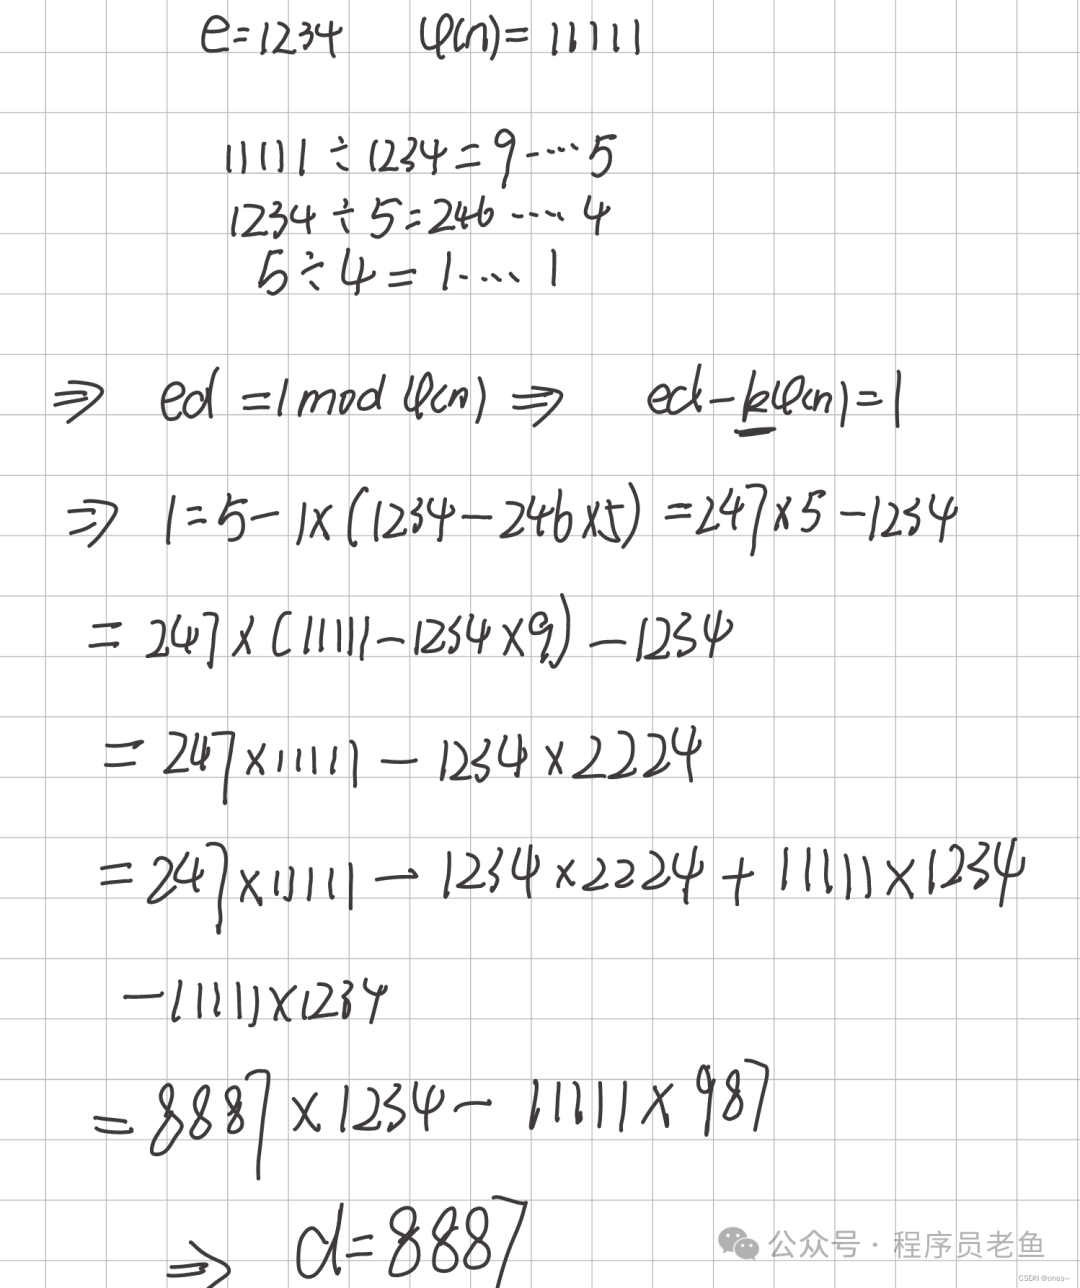 e=1234 φ(n)=11111
11111÷1234=9·····5
1234÷5=246·····4
5÷4=1·····1
⇒ ed=1 mod φ(n) ⇒ ed-kφ(n)=1
⇒ 1=5-1×(1234-246×5)=247×5-1234
=247×(11111-1234×9)-1234
=247×11111-1234×2224
=247×11111-1234×2224+11111×1234
-11111×1234
=8887×1234-11111×987
⇒ d=8887
公众号·程序员老鱼
CSDN @ones~